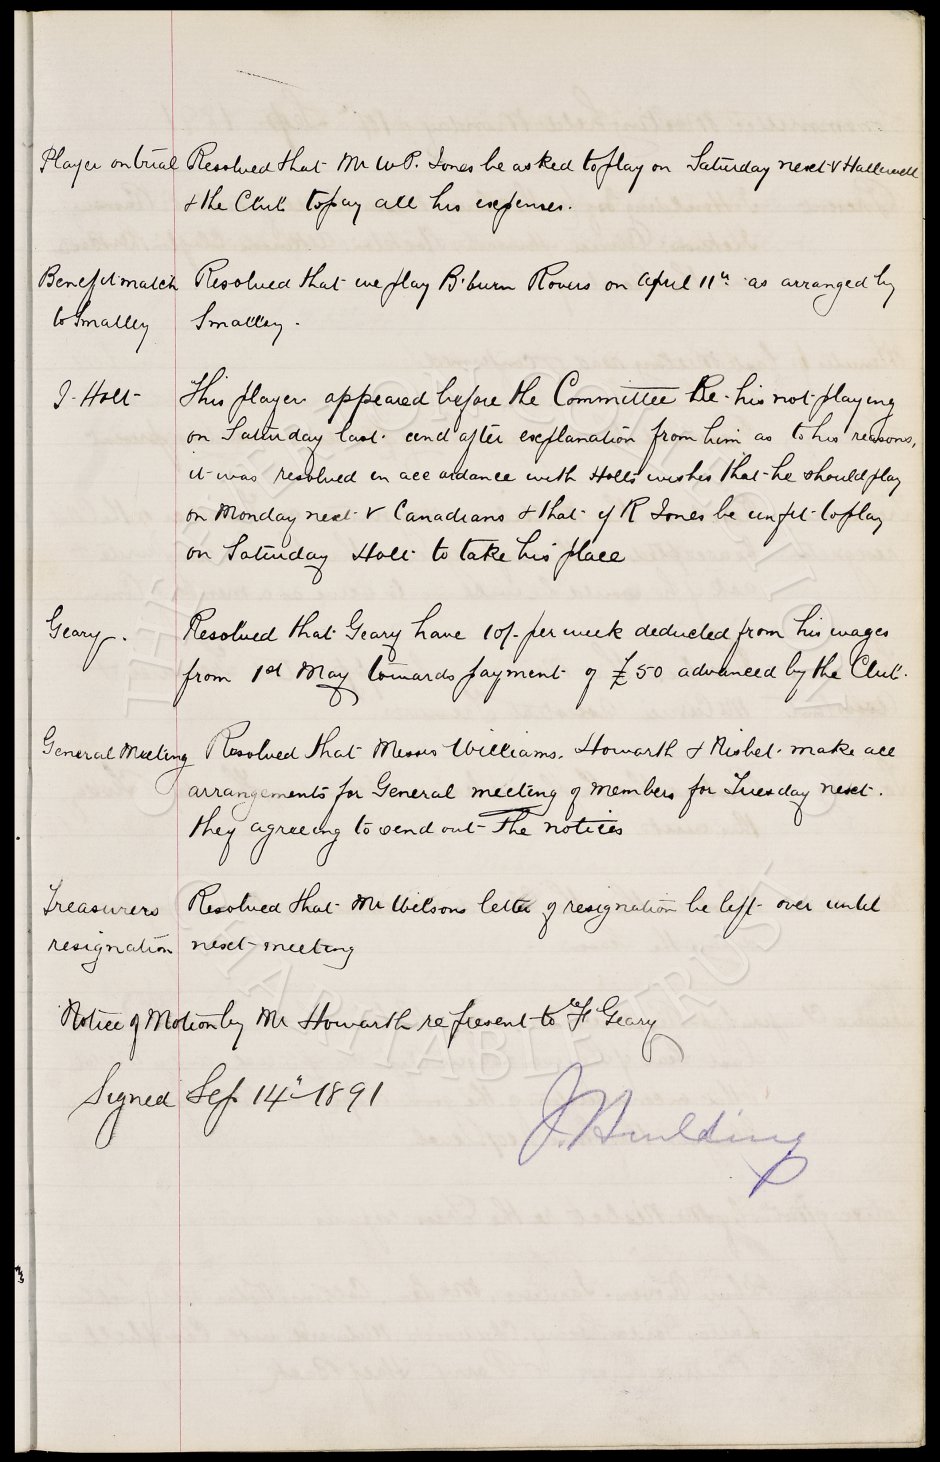 Player on trial Resolved that Mr W P. Jones be asked to play on Saturday next v Halliwell
& the Club to pay all his expenses.
Benefit match Resolved that we play B'burn Rovers on April 11th as arranged by
to Smalley Smalley.
J. Holt This player appeared before the Committee Re his not playing
on Saturday last and after explanation from him as to his reasons,
it was resolved in accordance with Holts wishes that he should play
on Monday next v Canadians & that if R Jones be unfit to play
on Saturday Holt to take his place
Geary. Resolved that Geary have 10/- per week deducted from his wages
from 1st May towards payment of £50 advanced by the Club.
General Meeting Resolved that Messrs Williams. Howarth & Nisbet make all
arrangements for General meeting of members for Tuesday next.
they agreeing to send out The notices
Treasurers Resolved that Mr Wilsons letter of resignation be left over until
resignation next meeting
Notice of Motion by Mr Howarth re present to F Geary
Signed Sep 14th 1891 J Houlding
THE EVERTON COLLECTION
CHARITABLE TRUST